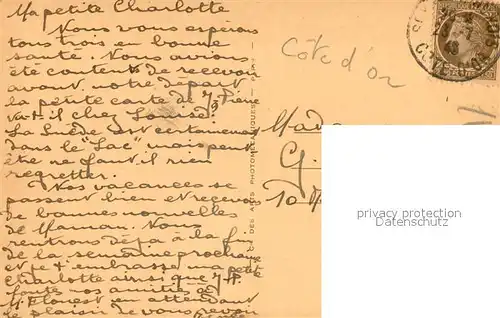 Ma petite Charlotte
Nous vous espérons
tous trois en bonne
santé. Nous avions
été contents de recevoir
avant notre départ
la petite carte de
il chez Louise.
La Suède est certainement
dans le "Lac" mais peut
être ne faut il rien
regretter.
Nos vacances se
passent bien et recevons
de bonnes nouvelles
de Maman. Nous
rentrons déjà à la fin
de la semaine prochaine
et je t'embrasse ma petite
Charlotte ainsi que
toutes nos amitiés à
M. en attendant
le plaisir de vous revoir
DES ARTS PHOTOMÉCANIQUES
Côte d'Or
Mada
G.
10
privacy protection
Datenschutz